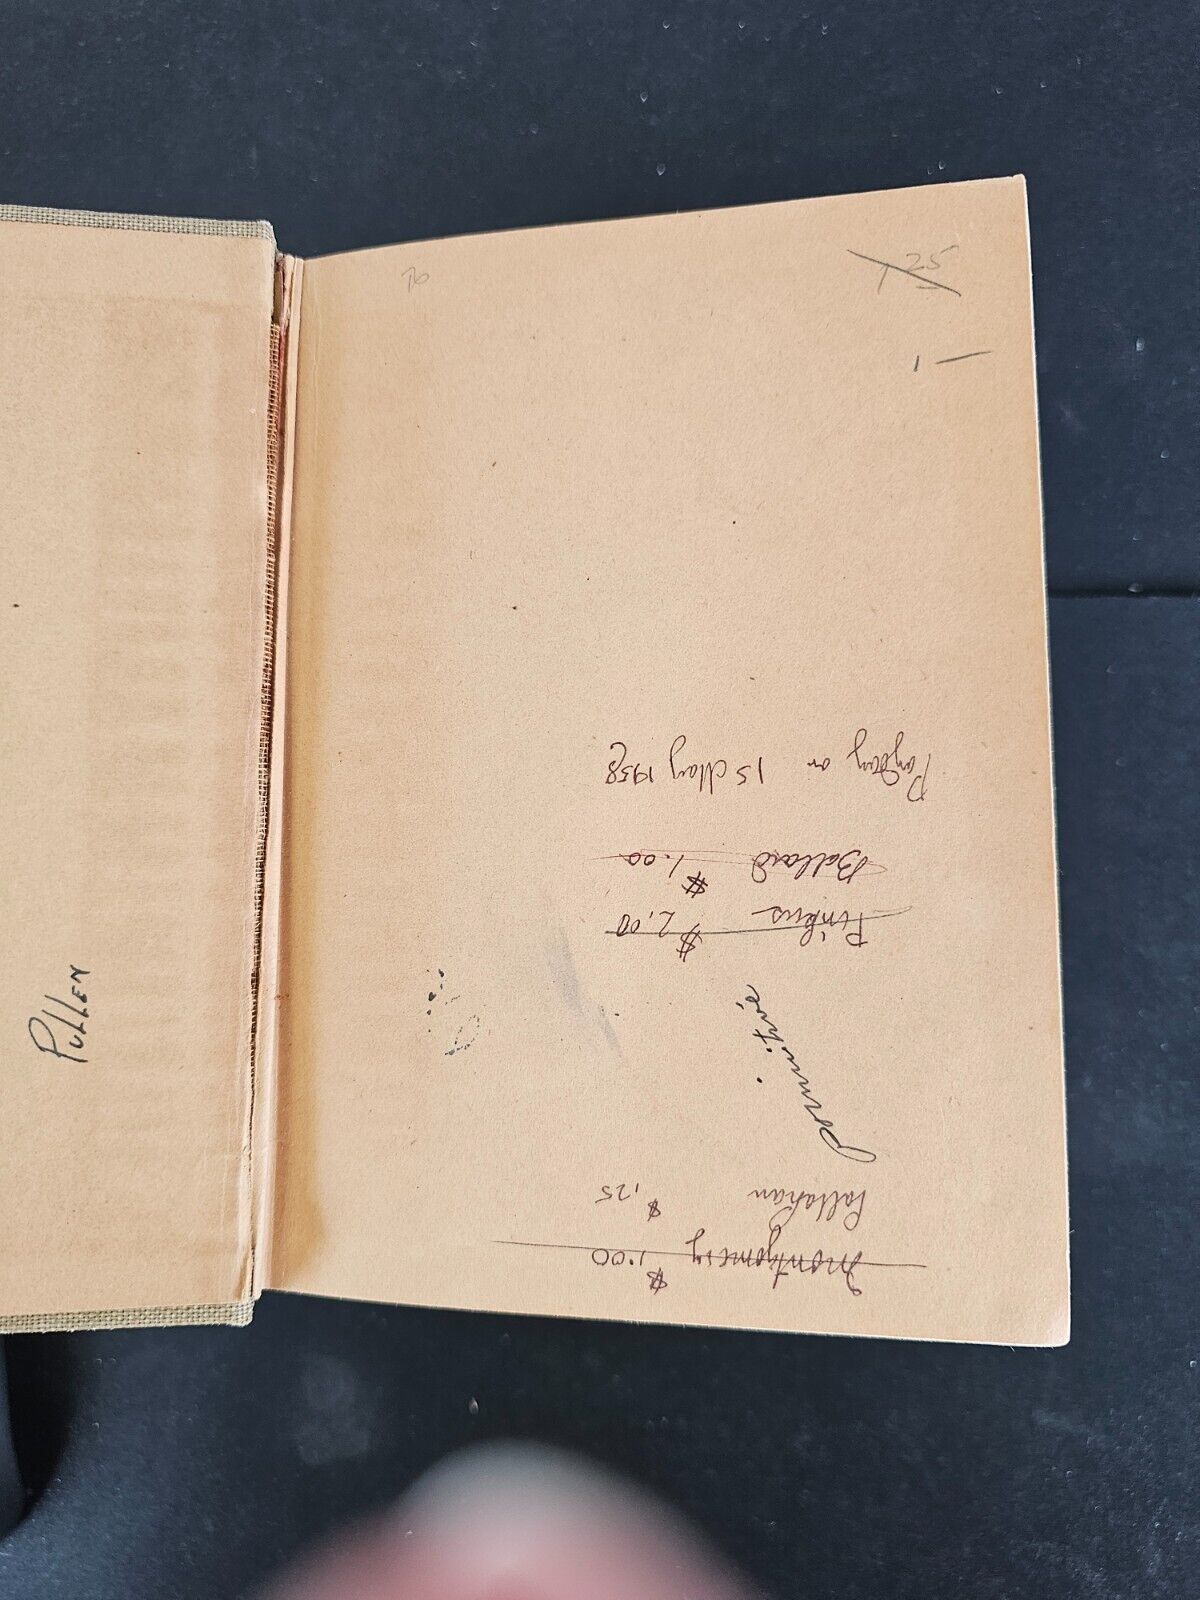 Pullen
1 25
1 —
Montgomery $1.00
Callahan $.25
primitive
Pinkus $2.00
Ballard $1.00
Payday on 15 May 1958